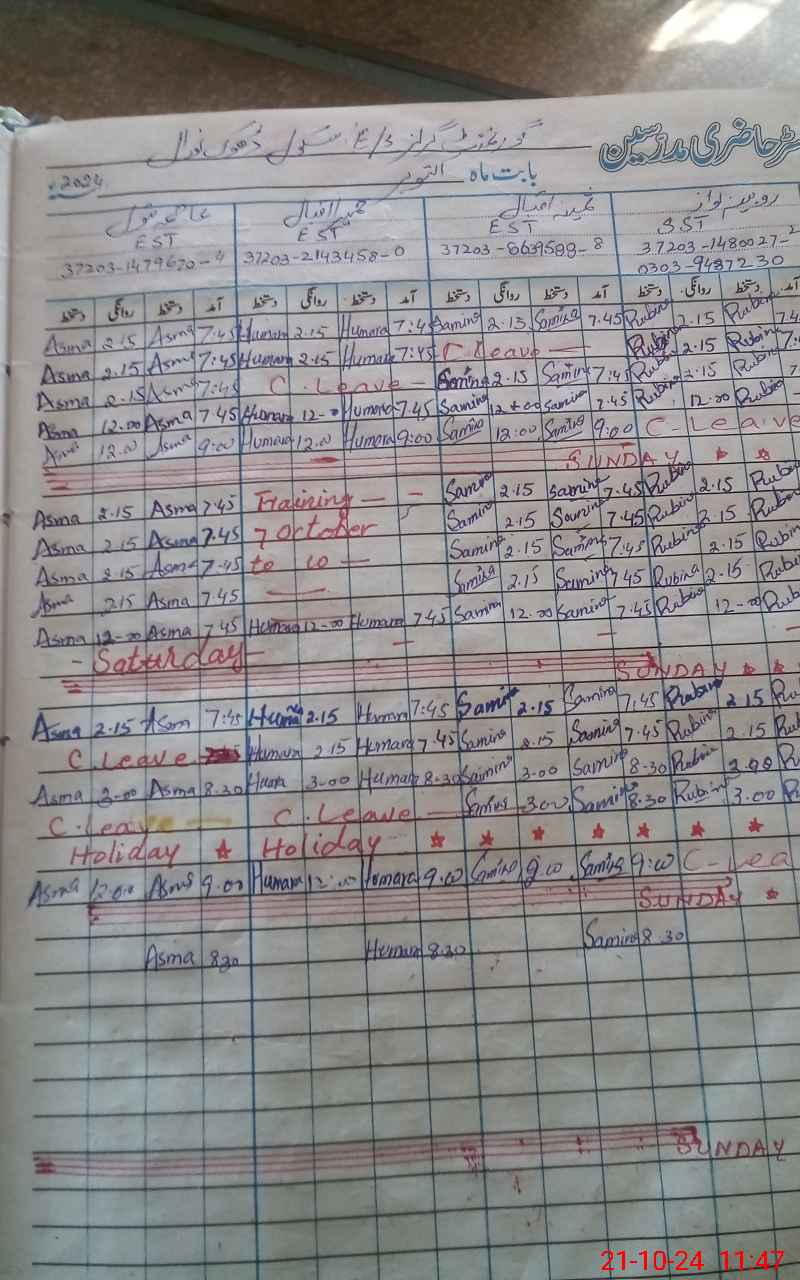 گورنمنٹ گرلز
سکول ڈھوک
رجسٹر حاضری مدرسین
بابت ماہ اکتوبر 2024
روبینہ نواز ثمینہ اقبال حمیرا اقبال
SST EST EST EST
37203-1480027-2 37203-8639588-8 37203-2143458-0 37203-1479670-4
0303-9487230
آمد دستخط روانگی دستخط آمد دستخط روانگی دستخط آمد دستخط روانگی دستخط
Asma 2.15 Asma 7.45 Humara 2.15 Humara 7.4 Samina 2.15 Samina 7.45 Rubina 2.15 Rubina 7.4
Asma 2.15 Asma 7:45 Humara 2.15 Humara 7:45 C Leave — Rubina 2.15 Rubina
Asma 2.15 Asma 7:45 C. Leave — Samina 2.15 Samina 7:4 Rubina 2.15 Rubina
Asma 12.00 Asma 7.45 Humara 12-00 Humara 7.45 Samina 12.00 Samina 7.45 Rubina 12.00 Rubina
Asma 12.00 Asma 9:00 Humara 12.00 Humara 9:00 Samina 12:00 Samina 9:00 C-Leave
SUNDAY
Asma 2.15 Asma 7.45 Training — — Samina 2.15 Samina 7.45 Rubina 2.15 Rubina
Asma 2.15 Asma 7.45 7 October Samina 2.15 Samina 7.45 Rubina 2.15 Rubina
Asma 2.15 Asma 7.45 to 10 — Samina 2.15 Samina 7.45 Rubina 2.15 Rubina
Asma 2.15 Asma 7.45 — Samina 2.15 Samina 7.45 Rubina 2.15 Rubina
Asma 12-00 Asma 7.45 Humara 12-00 Humara 7.45 Samina 12.00 Samina 7.45 Rubina 12-00 Rub
- Saturday-
SUNDAY
Asma 2.15 Asma 7:45 Huma 2.15 Humara 7:45 Samina 2.15 Samina 7:45 Rubina 2.15 Rubi
C. Leave Humara 2.15 Humara 7.45 Samina 2.15 Samina 7.45 Rubina 2.15 Rub
Asma 3.00 Asma 8.30 Humara 3.00 Humara 8.30 Samina 3.00 Samina 8.30 Rubina 3.00 R
C. Leave — C. Leave — Samina 3.00 Samina 8.30 Rubina 3.00 R
Holiday Holiday
Asma 12.00 Asma 9.00 Humara 12.00 Humara 9.00 Samina 9.00 Samina 9:00 C-Lea
SUNDAY
Asma 8.30 Humara 8.30 Samina 8.30
SUNDAY
21-10-24 11:47